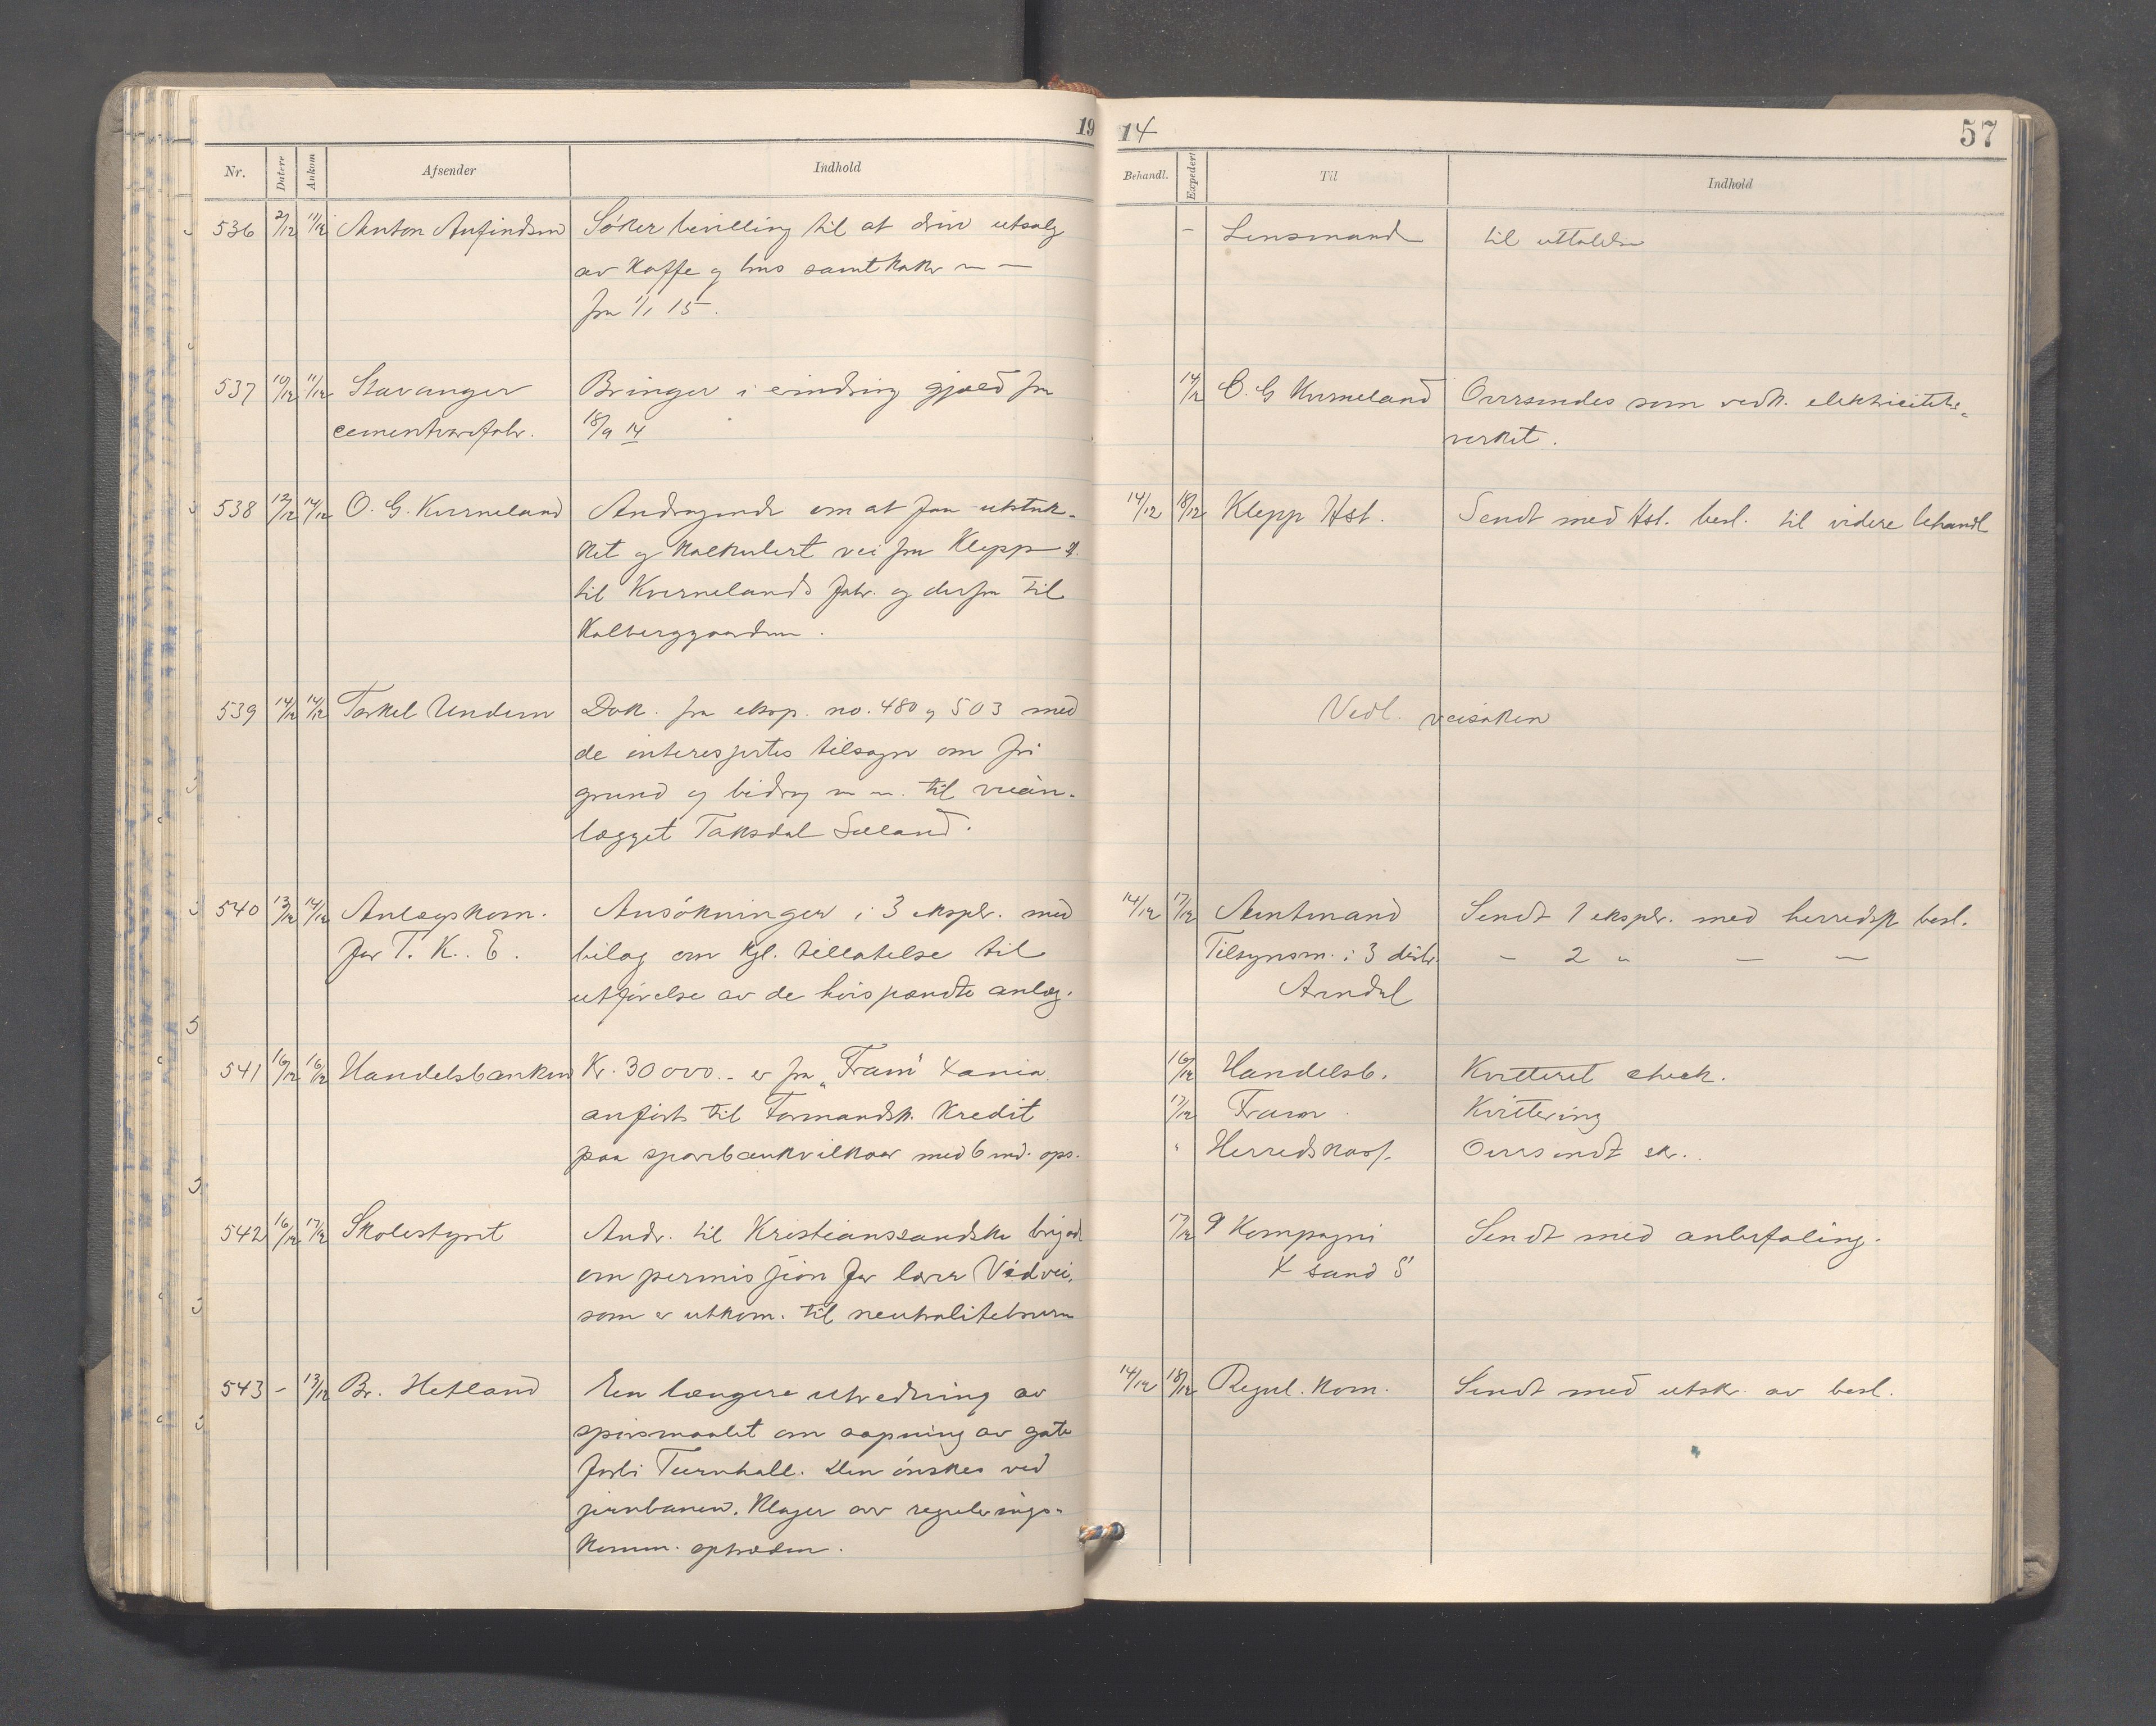 19 14
57
Nr. Datere Ankom Afsender Indhold Behandl. Expedert Til Indhold
536 2/12 11/12 Anton Anfindsen Söker bevilling til at drive utsalg – Lensmand til uttalelse
av kaffe og brus samt kaker m –
fra 1/1 15.
537 10/12 11/12 Stavanger Bringer i erindring gjæld fra 14/12 O. G Kverneland Oversendes som vedk. elektricitets-
cementvarefabr. 18/9 14 verket.
538 12/12 14/12 O. G. Kverneland Andragende om at faa utstuk- 14/12 18/12 Klepp Hst. Sendt med Hst. besl. til videre behandl
ket og kalkulert vei fra Klepp st.
til Kvernelands fabr. og derfra til
Kalberggaarden.
539 14/12 14/12 Torkel Undem Dok. fra eksp. no. 480 og 503 med Vedl. veisaken
de interessertes tilsagn om fri
grund og bidrag m m. til veian-
lægget Taksdal Sæland.
540 13/12 14/12 Anlægskom. Ansökninger i 3 ekspl. med 14/12 17/12 Amtmand Sendt 1 ekspl. med herredsst besl.
for T. K. E. bilag om kgl. tillatelse til Tilsynsm. i 3 distr. – 2 " – –
utförelse av de höispændte anlæg. Arendal
541 16/12 16/12 Handelsbanken Kr. 30000.- er fra „Fram" Xania 16/12 Handelsb. Kvitteret check.
anført til Formandsk. kredit 17/12 Fram. Kvittering
paa sparebankvilkaar med 6 md. ops. " Herredskass. Oversendt sk.
542 16/12 17/12 Skolestyret Andr. til Kristianssandske brigade 17/12 9 Kompagni Sendt med anbefaling.
om permission for lærer Vådvei, X sand S
som er utkom. til neutralitetsvern
543 – 13/12 Br. Hetland En længere utredning av 14/12 18/12 Regul. kom. Sendt med utskr. av besl.
spörsmaalet om aapning av gate
forbi Turnhall. Den önskes ved
jernbanen. Klager over regulerings-
komm. optræden.